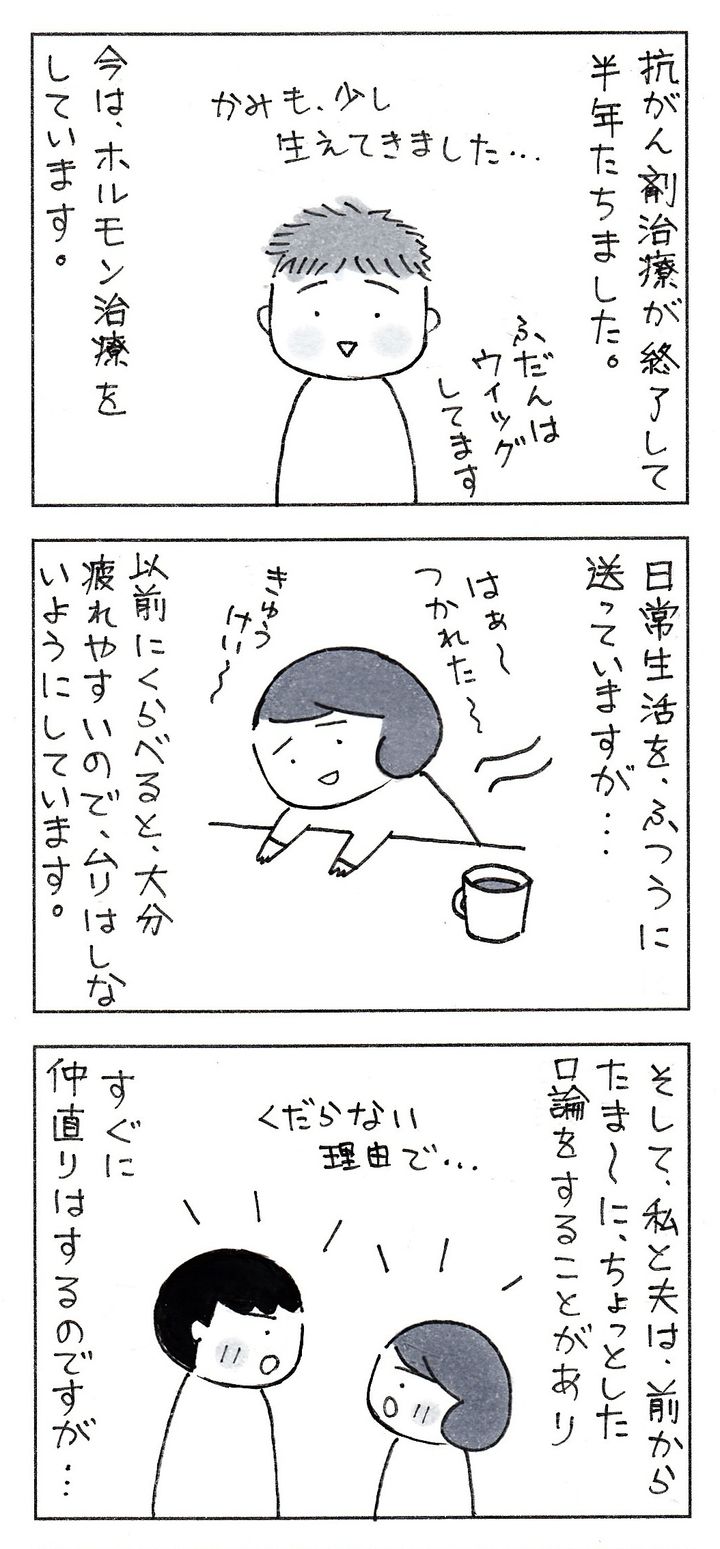 抗がん剤治療が終了して
半年たちました。
かみも、少し
生えてきました…
ふだんは
ウィッグ
してます
今は、ホルモン治療を
しています。
日常生活を、ふつうに
送っていますが…
はぁ〜
つかれた〜
きゅう
けい〜
以前にくらべると、大分
疲れやすいので、ムリはしな
いようにしています。
そして、私と夫は、前から
たま〜に、ちょっとした
口論をすることがあり
くだらない
理由で…
すぐに
仲直りはするのですが…